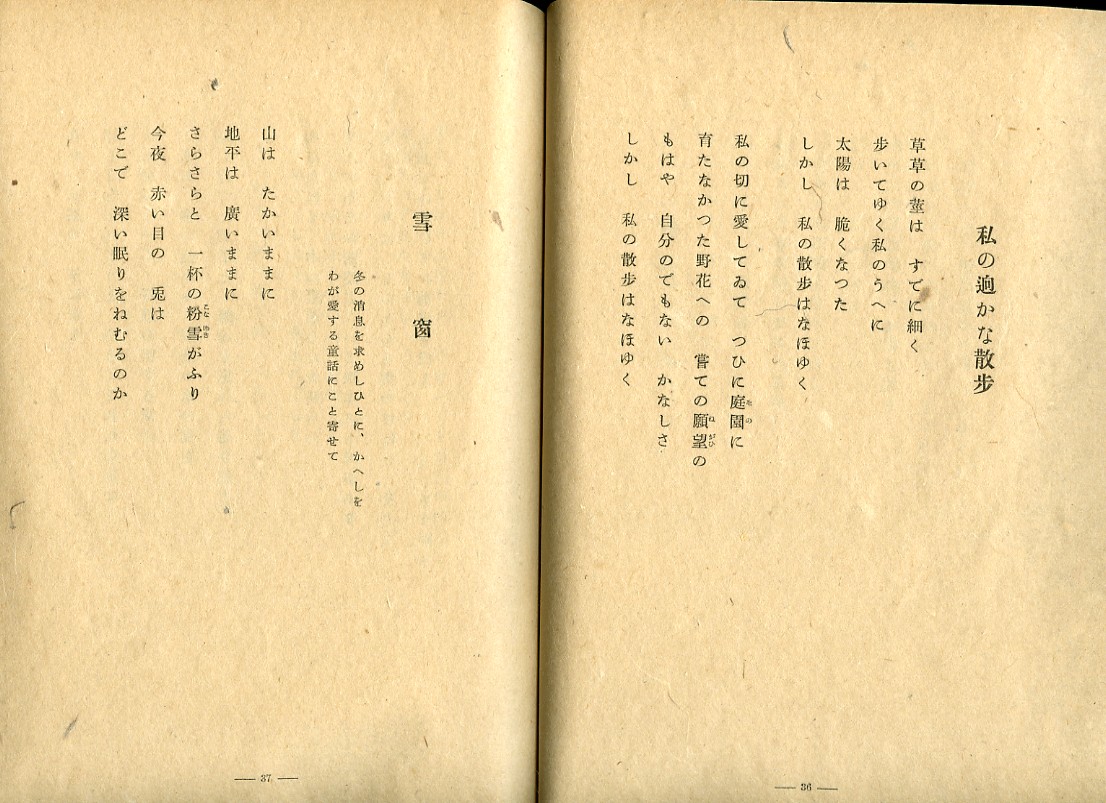 私の逈かな散歩
草草の莖は　すでに細く
歩いてゆく私のうへに
太陽は　脆くなつた
しかし　私の散歩はなほゆく
私の切に愛してゐて　つひに庭園に
育たなかつた野花への　嘗ての願望の
もはや　自分のでもない　かなしさ
しかし　私の散歩はなほゆく
— 36 —
雪　窗
冬の消息を求めしひとに、かへしを
わが愛する童話にこと寄せて
山は　たかいままに
地平は　廣いままに
さらさらと　一杯の粉雪がふり
今夜　赤い目の　兎は
どこで　深い眠りをねむるのか
— 37 —